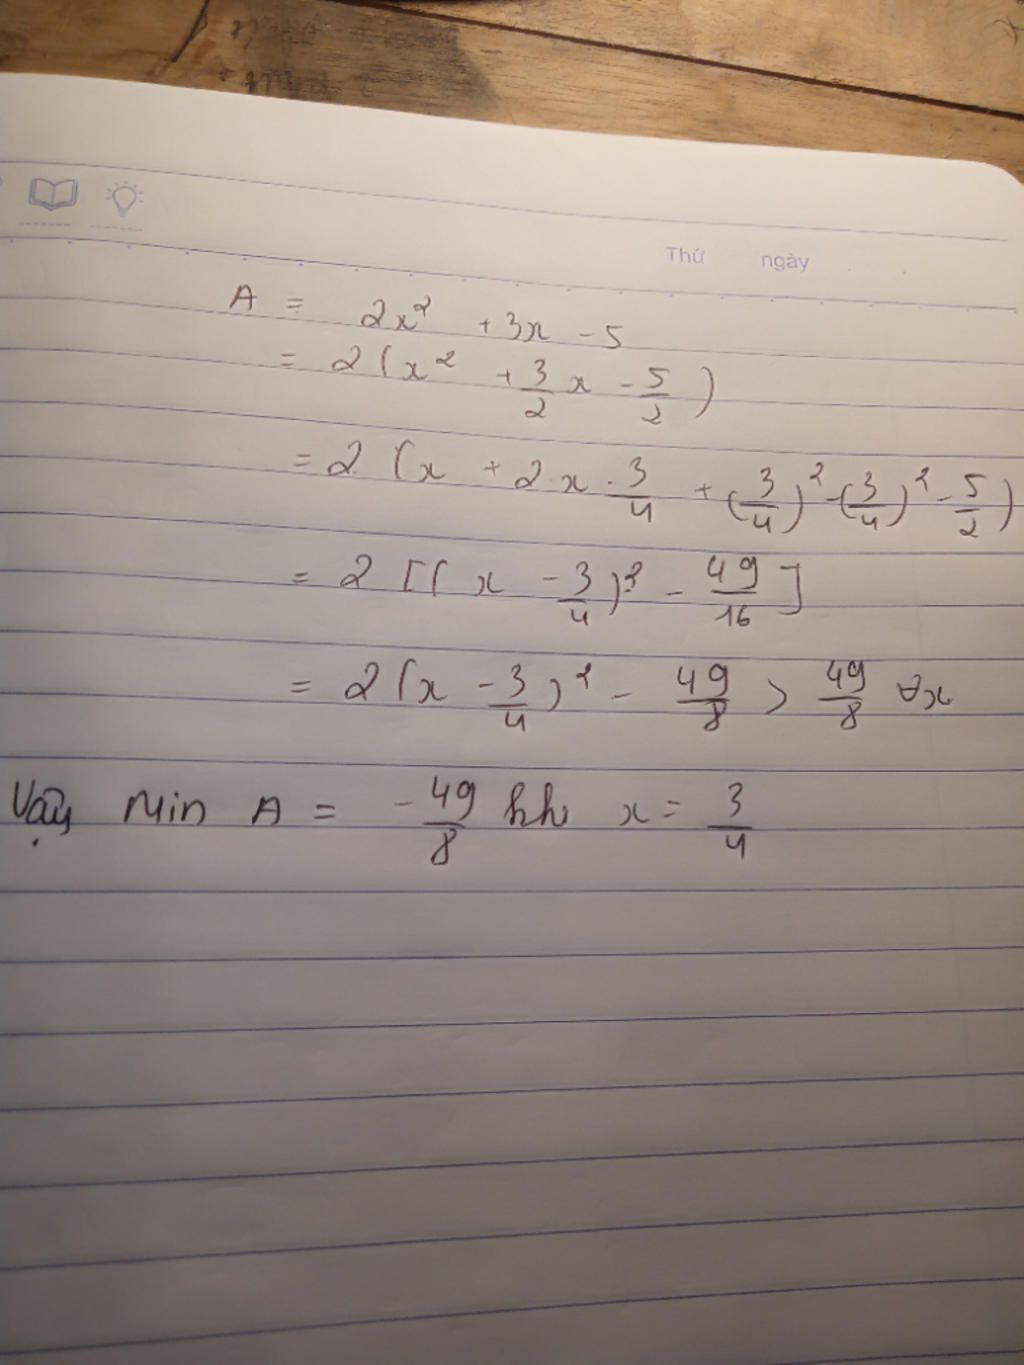 Thứ ngày
A = 2x² + 3x - 5
= 2(x² + 3/2 x - 5/2)
= 2(x + 2.x.3/4 + (3/4)² - (3/4)² - 5/2)
= 2[(x - 3/4)² - 49/16]
= 2(x - 3/4)² - 49/8 > 49/8 ∀x
Vậy Min A = -49/8 khi x = 3/4